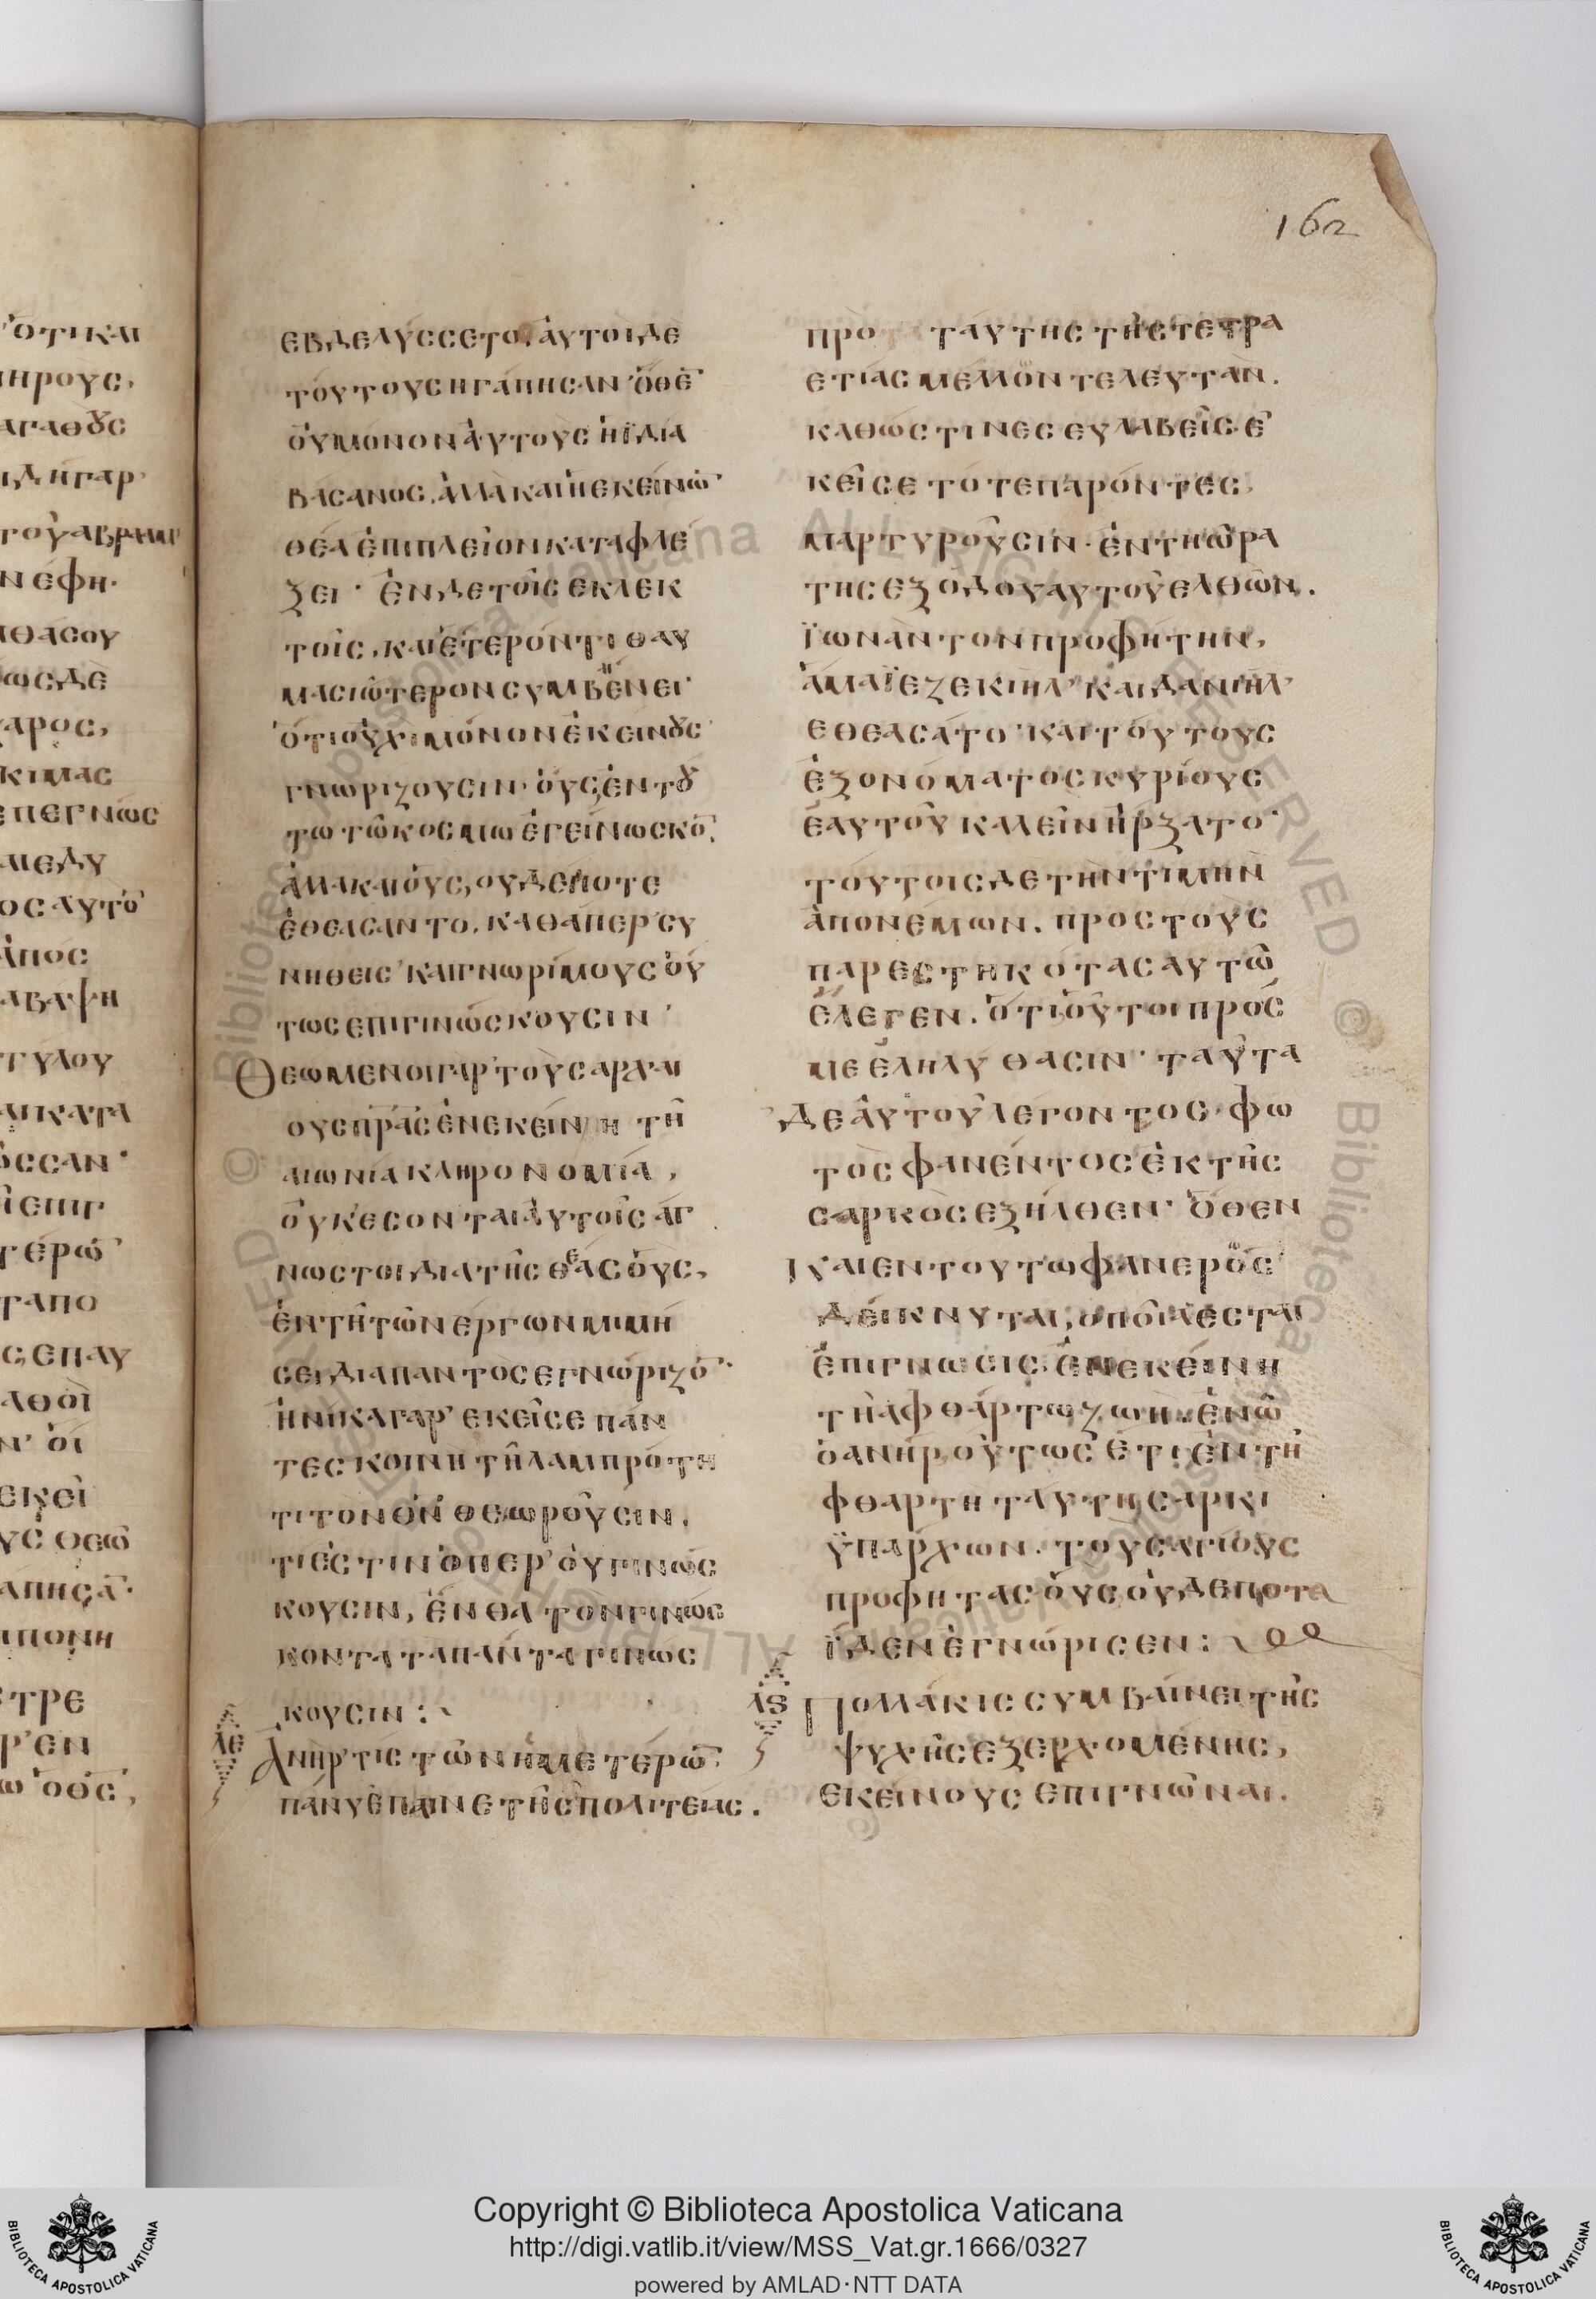 162
ὅτι και
πηρους,
αγαθȣς
δηγαρ
τοῦ αβραμ
ν ἐφη·
ωσδὲ
αρος,
κιμας
επεγνως
ος αυτο̅
ἀπος
αβυψη
γυλου
σσαν·
τέρω̅
γαπο
ς, επαυ
αθοὶ
ν· ὁι
εκεῖ
υς θεω̅
απησα̅·
τρε
ρ' εν
ω ὁ θς̅,
εβδελύσσετο. ἀυτοιδὲ
τούτους ηγάπησαν· ὅθε̅
ὀυμόνον ἀυτοὺς ἡϊδία
βάσανος, ἀλλὰ καὶ ἡ εκείνω̅
θέα ἐπιπλεῖον καταφλέ
ξει· ἐνδετοῖς εκλεκ
τοῖς, και ἕτερόν τι θαυ
μασιώτερον συμβένει·
ὅτι οὐχὶ μόνον ἐκεινȣς
γνωρίζουσιν· ὁυς ἐν τȣ
τω τῶ κόσμω ἐγείνωσκο̅,
ἀλλακαι ὁυς, ουδέποτε
ἐθεάσαντο. καθάπερ συ
νηθεις και γνωρίμους ὁύ
τως επιγινώσκουσιν·
Θεωμενοι γαρ τοὺς αρχαι
ους πρα̅ς ἐν εκείνη τῆ
αιωνία κληρονομία,
ὀυκ έσονται ἀυτοῖς άγ
νωστοι διατῆς θεας ὁυς,
ἐν τῆ τῶν ἐργων μιμή
σει διαπαντὸς εγνώριζο̅·
ἡνίκα γαρ εκεῖσε πάν
τες κοινῆ τῆ λαμπρότη
τι τὸν θν̅ θεωροῦσιν,
τι ἐστιν ὅπερ ὀυ γινώς
κουσιν, ἔνθα τὸν γινώς
κοντα τὰ πάντα γινώς
κουσιν:
λε Ἀνὴρ τις τῶν ἡμετέρω̅,
πάνυ ἐπαινετῆς πολιτείας.
πρὸ ταύτης τῆς τετρα
ετίας μέλλων τελευτᾶν.
καθώς τινες ευλαβεῖς ε
κεῖσε τότε παρόντες,
μαρτυροῦσιν· ἐν τῆ ὥρα
της εξόδου αυτοῦ ελθὼν.
ϊωνὰν τον προφήτην,
ἅμα ϊεζεκιὴλ και δανιὴλ
εθεάσατο· και τούτους
ἐξ ονόματος κυρίους
ἑαυτοῦ καλεῖν ἤρξατο·
τούτοις δε τὴν τιμὴν
ἀπονέμων. προς τοὺς
παρεστηκότας αυτῶ
ἔλεγεν. ὅτι οὗτοι πρός
με ἐληλύθασιν· ταῦτα
δε ἀυτοῦ λέγοντος· φω
τὸς φανέντος ἐκ τῆς
σαρκὸς εξῆλθεν· ὅθεν
και εν τούτω φανερῶς
δείκνυται, οποία έσται
ἐπιγνωσις. ἐν εκείνη
τῆ αφθάρτω ζωῆ. ἐν ὧ
ὁ ανὴρ, οὕτως ἔτι ἐν τῆ
φθαρτῆ ταύτη σαρκὶ
ὑπάρχων. τοὺς αγίους
προφήτας ὁυς, ὀυδέποτε
ϊδεν ἐγνώρισεν:
λϛ Πολλάκις συμβαίνει τῆς
ψυχῆς εξερχομένης,
εκείνους επιγνῶναι.
Copyright © Biblioteca Apostolica Vaticana
http://digi.vatlib.it/view/MSS_Vat.gr.1666/0327
powered by AMLAD·NTT DATA
BIBLIOTECA APOSTOLICA VATICANA
BIBLIOTECA APOSTOLICA VATICANA